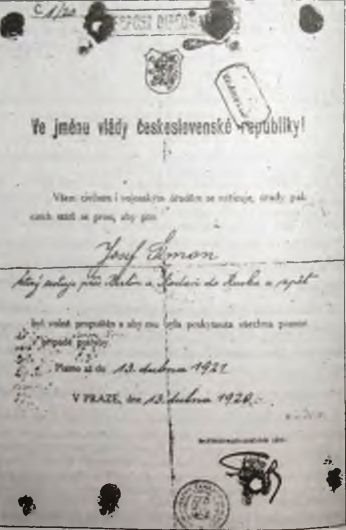 Č 1/20
Ve jménu vlády československé republiky!
Všem civilním i vojenským úřadům se nařizuje, úřady pak
cizích států se prosí, aby pan
Josef
který cestuje přes Berlín a do Ruska a zpět
byl volně propuštěn a aby mu byla poskytnuta všechna pomoc
případě potřeby.
Platno až do 13. dubna 1921
V PRAZE, dne 13. dubna 1920.